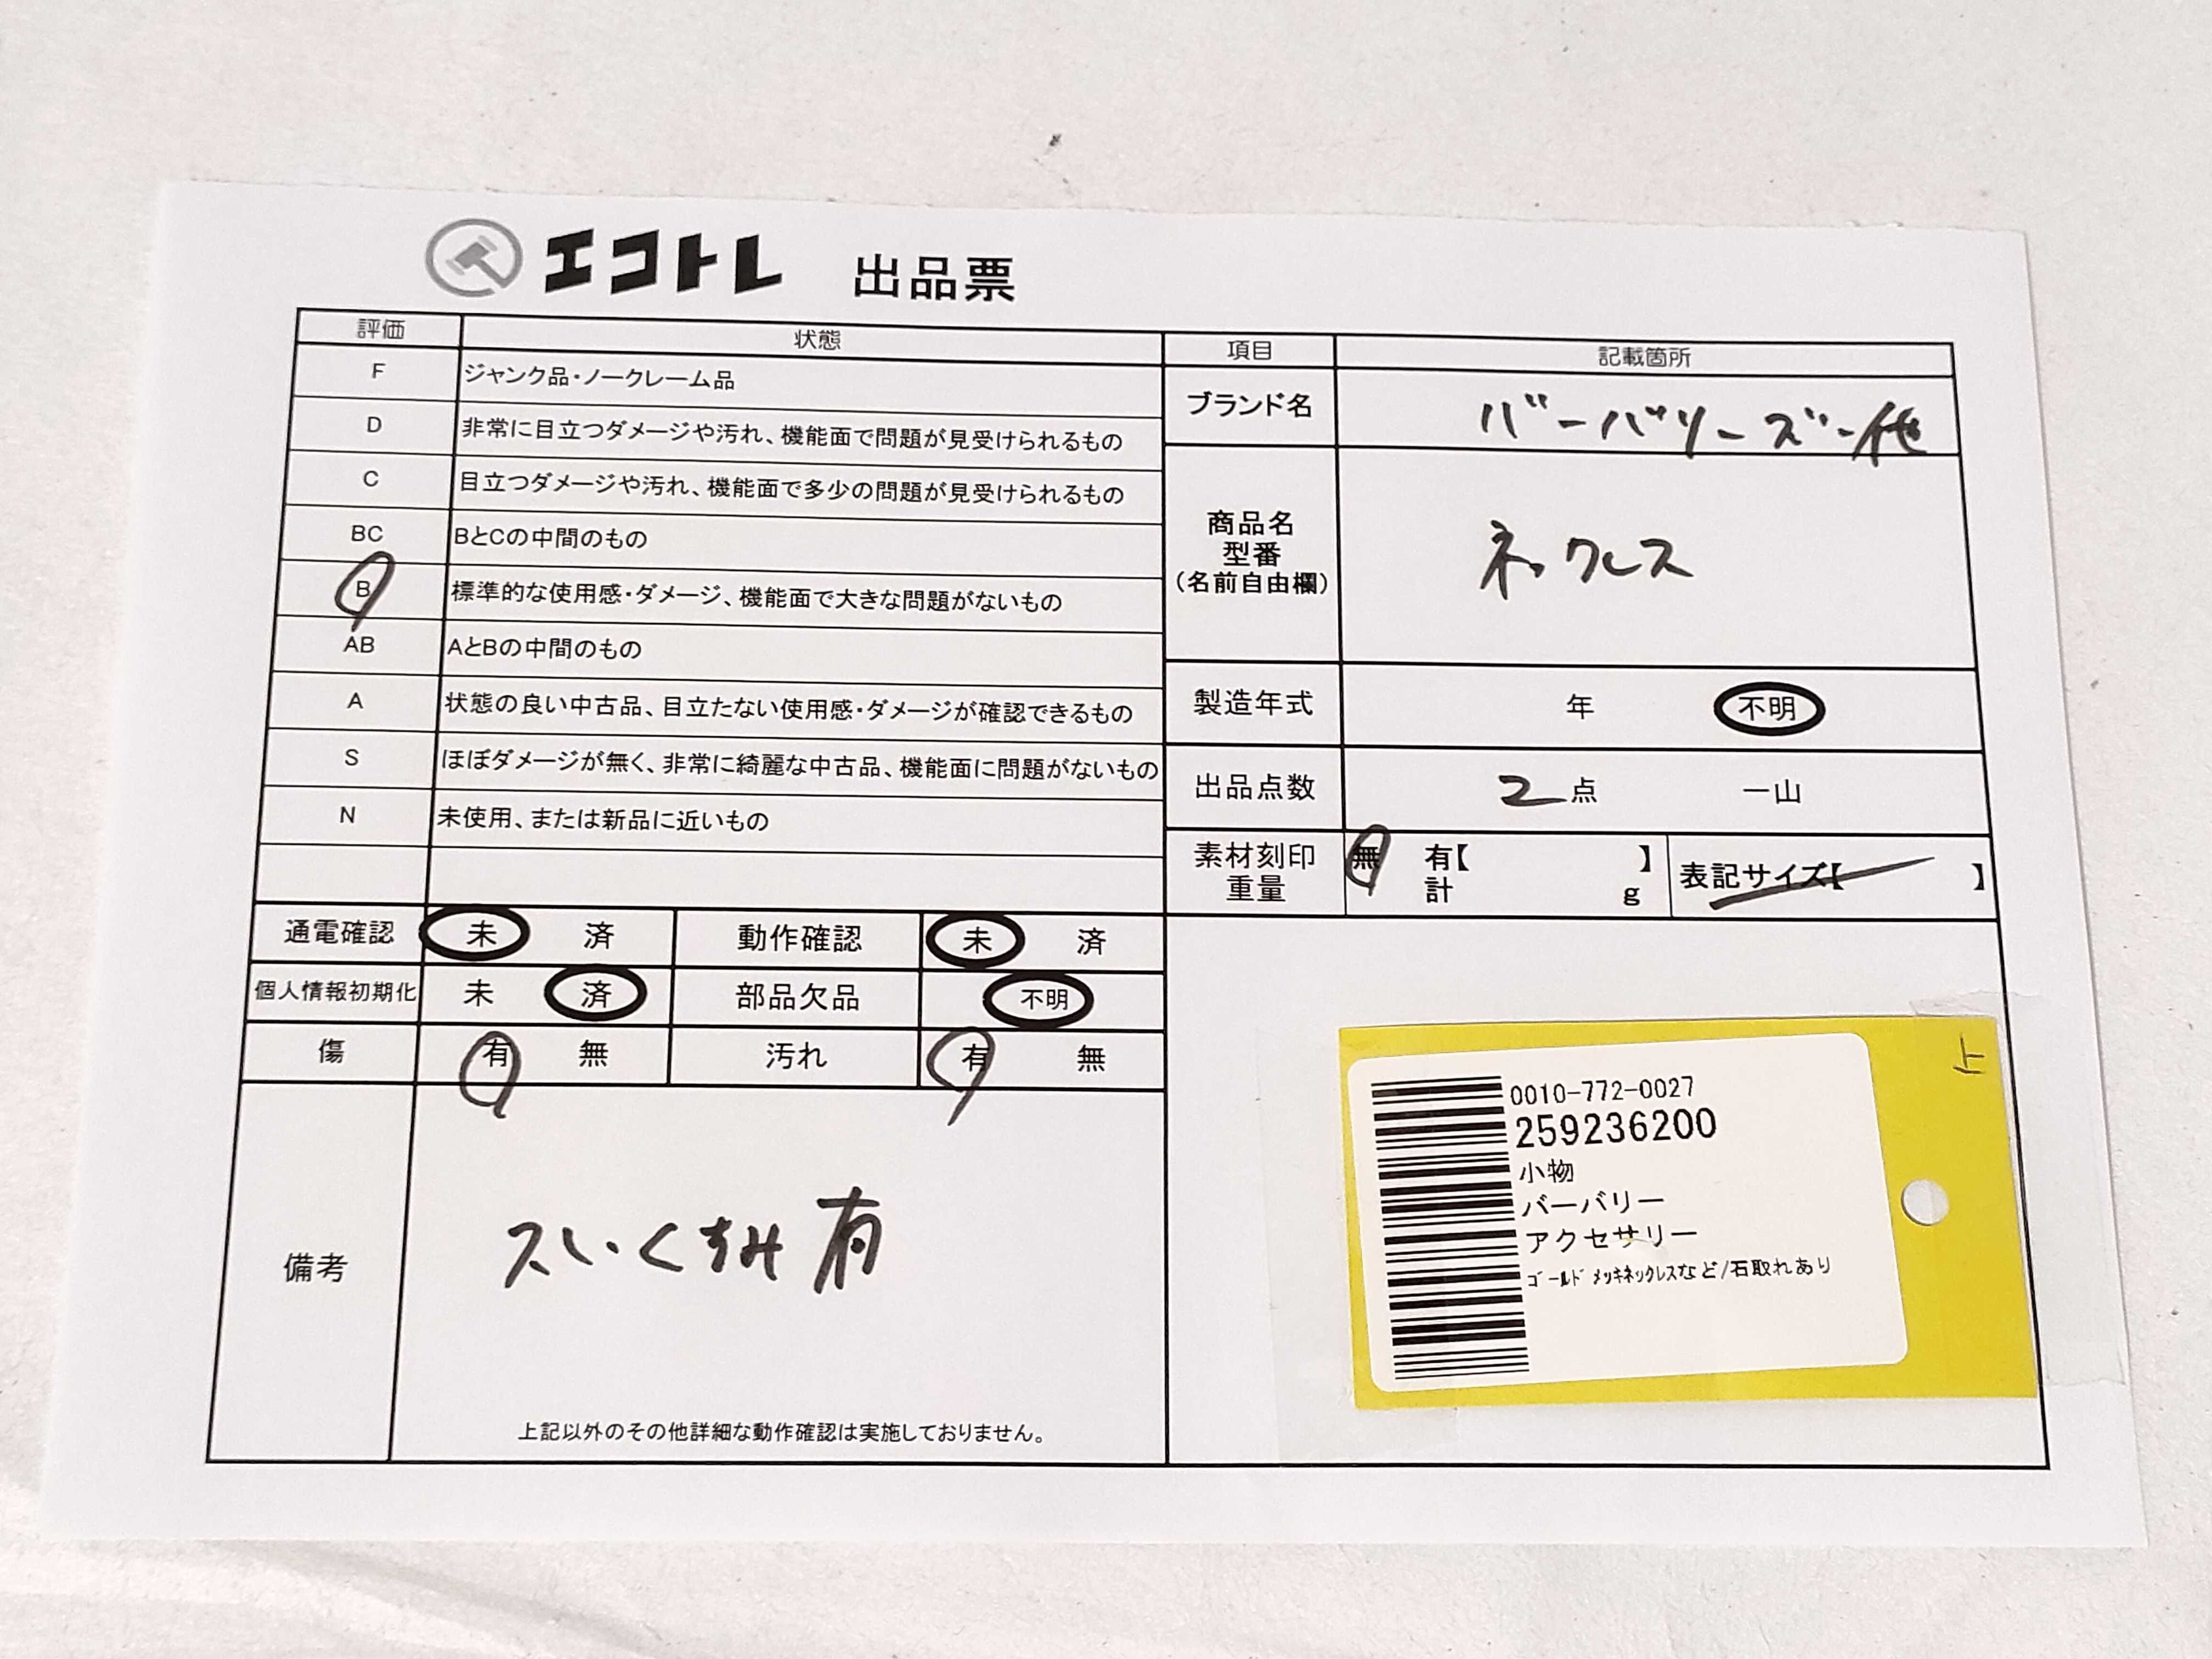 エコトレ 出品票
評価 状態
F ジャンク品・ノークレーム品
D 非常に目立つダメージや汚れ、機能面で問題が見受けられるもの
C 目立つダメージや汚れ、機能面で多少の問題が見受けられるもの
BC BとCの中間のもの
B 標準的な使用感・ダメージ、機能面で大きな問題がないもの
AB AとBの中間のもの
A 状態の良い中古品、目立たない使用感・ダメージが確認できるもの
S ほぼダメージが無く、非常に綺麗な中古品、機能面に問題がないもの
N 未使用、または新品に近いもの
項目 記載箇所
ブランド名 バーバリーズ 他
商品名
型番
(名前自由欄)
ネックレス
製造年式 年 不明
出品点数 2点 一山
素材刻印 無 有【 】
重量 計 g
表記サイズ【 】
通電確認 未 済 動作確認 未 済
個人情報初期化 未 済 部品欠品 不明
傷 有 無 汚れ 有 無
備考
有
上記以外のその他詳細な動作確認は実施しておりません。
0010-772-0027
259236200
小物
バーバリー
アクセサリー
ゴールドメッキネックレスなど/石取れあり